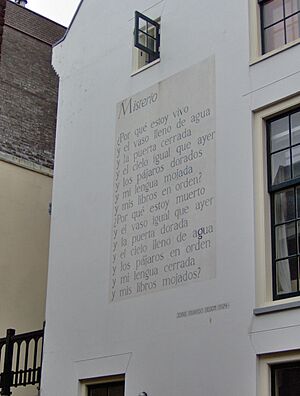 Misterio
¿Por qué estoy vivo
y el vaso lleno de agua
y la puerta cerrada
y el cielo igual que ayer
y los pájaros dorados
y mi lengua mojada
y mis libros en orden?
¿Por qué estoy muerto
y el vaso igual que ayer
y la puerta dorada
y el cielo lleno de agua
y los pájaros en orden
y mi lengua cerrada
y mis libros mojados?
JORGE EDUARDO EIELSON